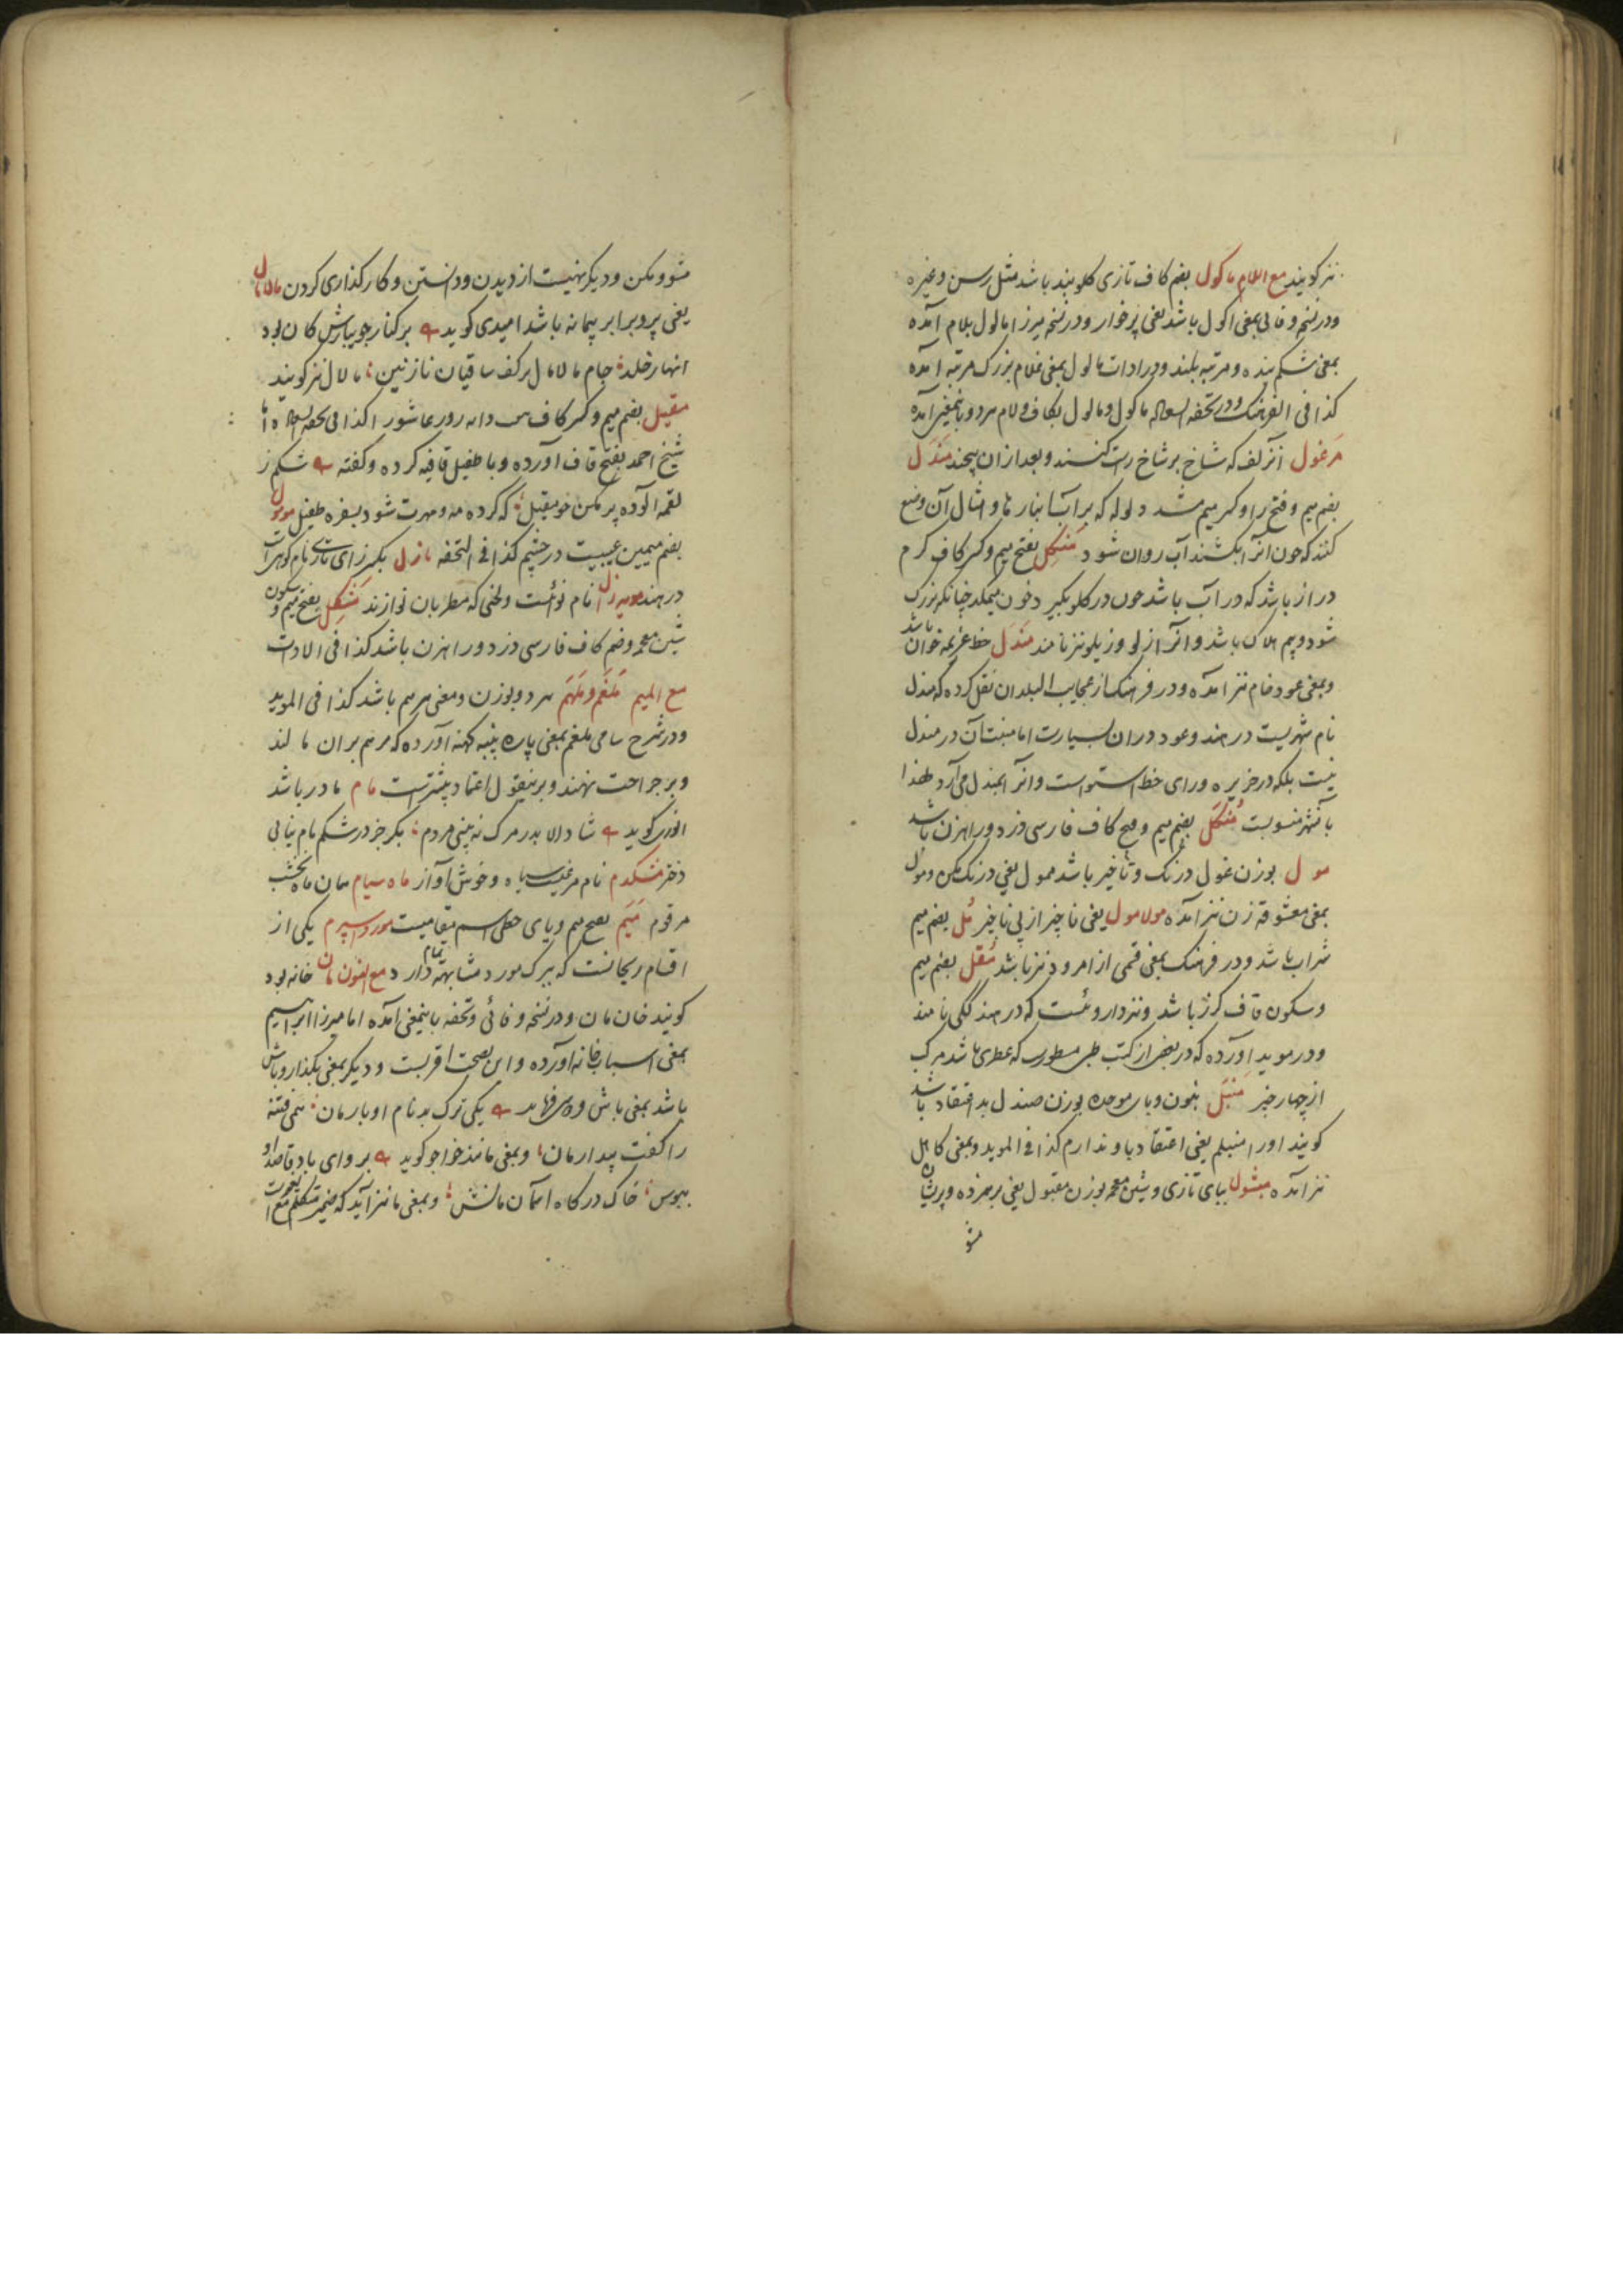 نیز گویند مع اللام ماکول بضم کاف تازی گلوبند باشد مثل رسن و غیره
و در نسخه وفائی بمعنی اکول باشد یعنی پرخوار و در نسخه میرزا مالول بلام آمده
بمعنی شکم بنده و مرتبه بلند و در ادات مالول بمعنی غلام بزرک مرتبه آمده
کذا فی الفرهنک و در تحفه السعاده ماکول و مالول بکاف و لام هر دو باینمعنی آمده
مرغول آنزلف که شاخ بر شاخ راست کنند و بعد از ان پیچند مندل
بضم میم و فتح را و کسر میم مشدد لوله که بر آبشارها و امثال آن وضع
کنند که چون انرا بکشند آب روان شود منکل بفتح میم و کسر کاف کرم
دراز باشد که در آب باشد چون در کلو بکیرد خون میمکد چنانکه بزرک
شود و بیم هلاک باشد و انرا زلو و زیلو نیز نامند مندل خط عزیمه خوان باشد
و بمعنی عود خام نیز آمده و در فرهنک از عجایب البلدان نقل کرده که مندل
نام شهریست در هند و عود در ان بسیارست اما منبت آن در مندل
نیست بلکه در جزیره ورای خط استواست و انرا بمندل می آرد لهذا
بآنشهر منسوبست منکل بضم میم و فتح کاف فارسی دزد و راهزن باشد
مول بوزن غول درنک و تاخیر باشد ممول یعنی درنک مکن و مول
بمعنی معشوقه زن نیز آمده مولامول یعنی تاخیر از پی تاخیر مل بضم میم
شراب باشد و در فرهنک بمعنی قسمی از امرود نیز باشد مقل بضم میم
و سکون قاف کرز باشد و نیز داروئست که در هند ککلی نامند
و در موید آورده که در بعضی از کتب طبی مسطورست که عطری باشد مرکب
از چهار چیز منبل بنون و بای موحده بوزن صندل بد اعتقاد باشد
کویند اورا منبلم یعنی اعتقاد باو ندارم کذا فی الموید و بمعنی کاهل
نیز آمده مبشول ببای تازی و شین معجمه بوزن مقبول یعنی برهمزده و پریشان
مشو
مشو و مکن و دیکر نهیست از دیدن و دانستن و کارکذاری کردن مالامال
یعنی پر و برابر پیمانه باشد امیدی کوید بر کنار جویبارش کان بود
انهار خلد جام مالامال بر کف ساقیان نازنین مالال نیز کویند
مقیل بضم میم و کسر کاف دانه روز عاشورا کذا فی تحفه السعاده اما
شیخ احمد بفتح قاف آورده و با طفیل قافیه کرده و کفته شکم ز
لقمه آلوده پر مکن خو مقیل که کرده مه و مهرت شود بسفره طفیل مومول
بضم میمین عیبیست در چشم کذا فی التحفه مازل بکسر زای تازی نام کوهیست
در هند مویه زال نام نوئست و لحنی که مطربان نوازند مشکل بفتح میم و سکون
شین معجمه و ضم کاف فارسی دزد و راهزن باشد کذا فی الادات
مع المیم ملغم و ملهم هر دو بوزن و معنی مرهم باشد کذا فی الموید
و در شرح سامی ملغم بمعنی پاره پنبه کهنه آورده که مرهم بران مالند
و بر جراحت نهند و برینقول اعتماد بیشترست مام مادر باشد
انوری کوید شاد الا بدر مرک نه بینی مردم بکر جز در شکم مام نیابی
دختر مشکدم نام مرغیست سیاه و خوش آواز ماه سیام همان ماه نخشب
مرقوم میم بفتح میم و یای حطی اسم مقامیست مورد اسپرم یکی از
اقسام ریحانست که ببرک مورد مشابهه تمام دارد مع النون مان خانه بود
کویند خان مان و در نسخه وفائی و تحفه باینمعنی آمده اما میرزا ابراهیم
بمعنی اسباب خانه آورده و این بصحت اقربست و دیکر بمعنی بکذار و باش
باشد بمعنی باش یکی ترک بد نام او بارمان همی فتنه
را کفت بیدار مان و بمعنی مانند خواجو کوید برو ای باد قاصد او
ببوس خاک درکاه آسمان مانش و بمعنی ما نیز آید که ضمیر متکلم مع الغیرست